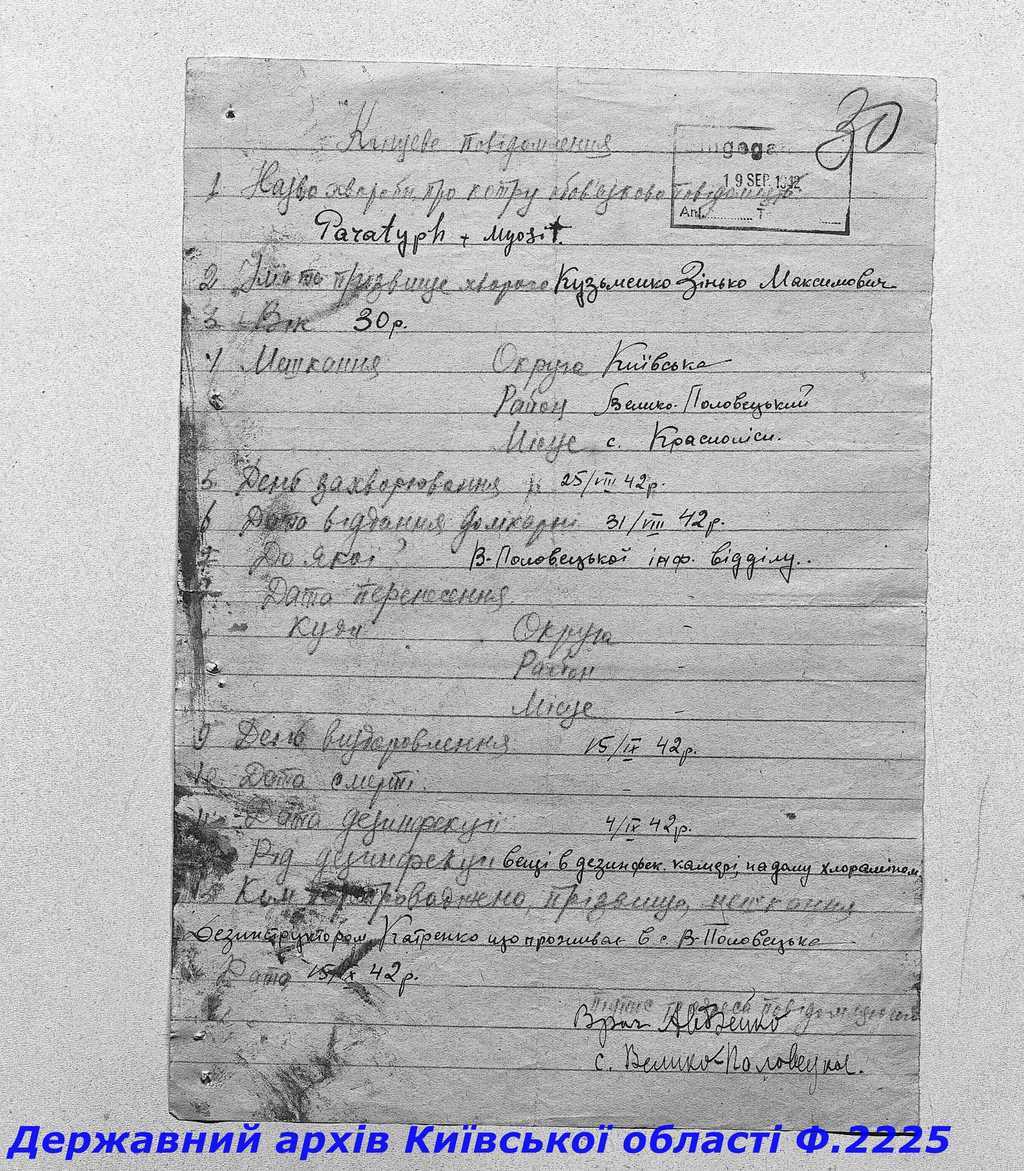 30
19 SEP. 1942
Кінцеве повідомлення
1 Назва хвороби, про котру обов'язково
Paratyph + Myosit.
2 Імя та прізвище хворого Кузьменко Зінько Максимович
3 Вік 30 р.
4 Мешкання Округа Київська
Район Велико-Половецький
Місце с. Красноліси.
5. День захворювання 25/VIII 42 р.
6 Дата віддання до лікарні 31/VIII 42 р.
7 До якої? В-Половецької інф. відділу.
Дата перенесення
Куди Округа -
Район -
Місце -
9 День видоровлення 15/IX 42 р.
10 Дата смерті.
11 Дата дезинфекції 4/IX 42 р.
Рід дезинфекції вещі в дезинфек. камері, на дому хлораміном
Ким переproваджено, прізвище, мешкання
Дезинструктором що проживає в с. В-Половецьке
Дата 15/IX 42 р.
підпис
Врач
с. Велико-Половецкое.
Державний архів Київської області Ф.2225